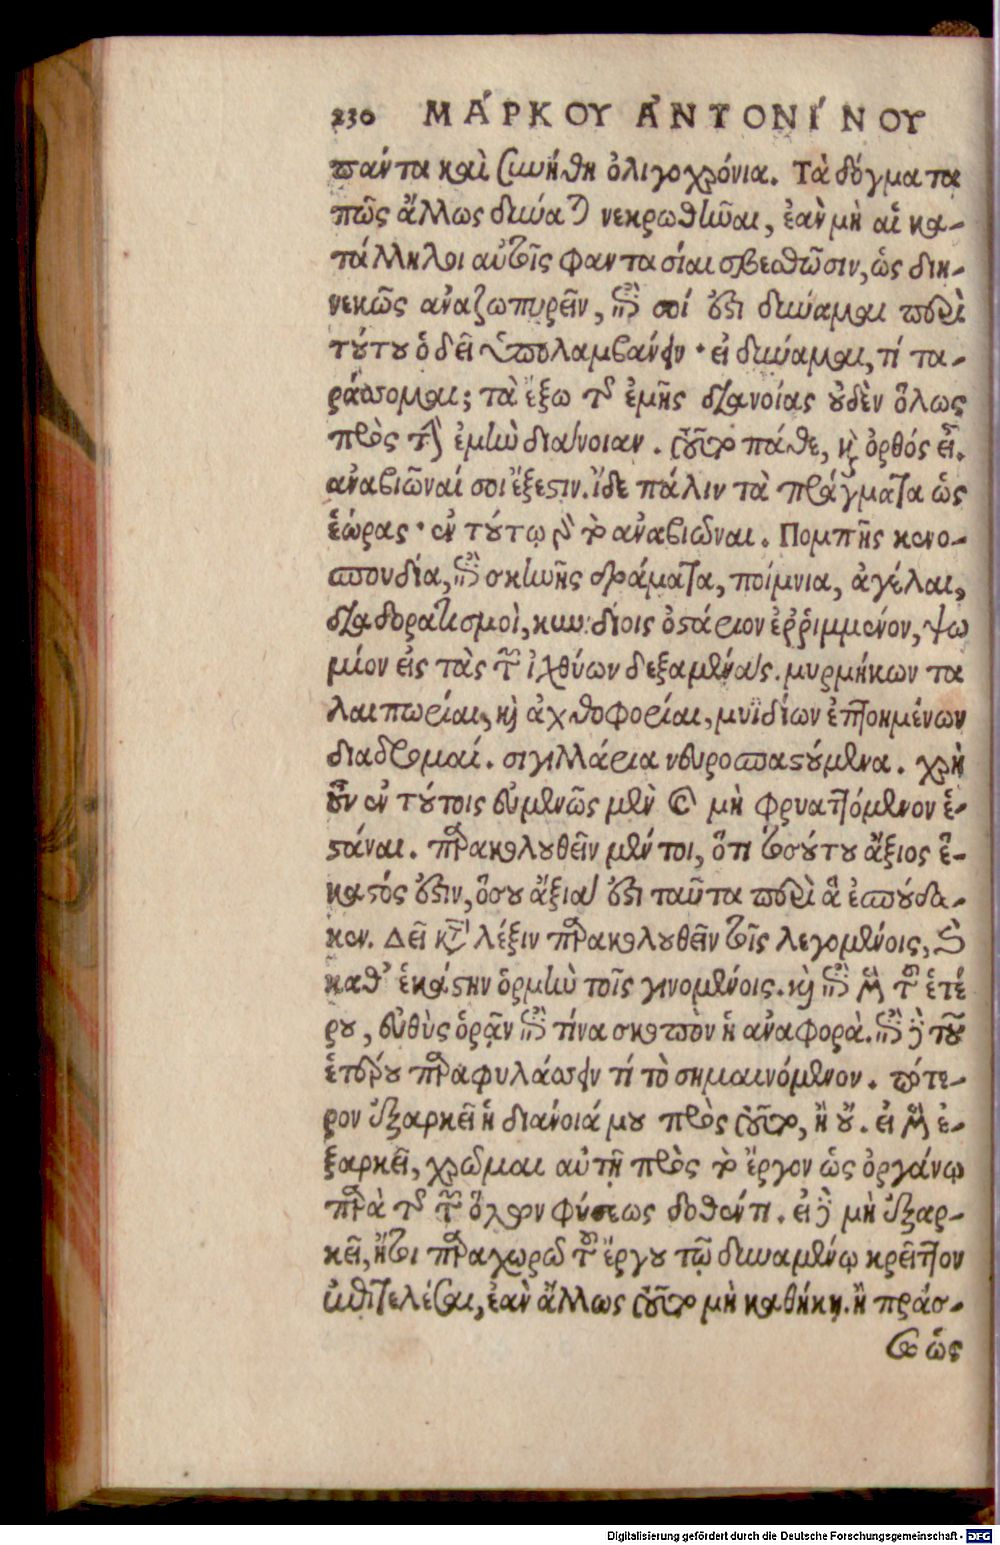 230 ΜΆΡΚΟΥ ἈΝΤΟΝΊΝΟΥ
πάντα καὶ συνήθη ὀλιγοχρόνια. Τὰ δόγματα
πῶς ἄλλως δύναται νεκρωθῆναι, ἐὰν μὴ αἱ κα-
τάλληλοι αὐτοῖς φαντασίαι σβεσθῶσιν, ὡς διη-
νεκῶς ἀναζωπυρεῖν, ἐπὶ σοί ἐστι δύναμαι περὶ
τούτου ὃ δεῖ ὑπολαμβάνειν· εἰ δύναμαι, τί τα-
ράσσομαι; τὰ ἔξω τῆς ἐμῆς διανοίας οὐδὲν ὅλως
πρὸς τὴν ἐμὴν διάνοιαν. τοῦτο πάθε, καὶ ὀρθός εἶ.
ἀναβιῶναί σοι ἔξεστιν. ἴδε πάλιν τὰ πράγματα ὡς
ἑώρας· ἐν τούτῳ γὰρ τὸ ἀναβιῶναι. Πομπῆς κενο-
σπουδία, ἐπὶ σκηνῆς δράματα, ποίμνια, ἀγέλαι,
διαδορατισμοὶ, κυνιδίοις ὀστάριον ἐῤῥιμμένον, ψω
μίον εἰς τὰς τῶν ἰχθύων δεξαμενάς. μυρμήκων τα
λαιπωρίαι, καὶ ἀχθοφορίαι, μυϊδίων ἐπτοημένων
διαδρομαί. σιγιλλάρια νευροσπαστούμενα. χρὴ
οὖν ἐν τούτοις εὐμενῶς μὲν καὶ μὴ φρυαττόμενον ἑ-
στάναι. παρακολουθεῖν μέντοι, ὅτι τοσούτου ἄξιος ἕ-
καστός ἐστιν, ὅσου ἄξια ἐστι ταῦτα περὶ ἃ ἐσπούδα-
κεν. Δεῖ κατὰ λέξιν παρακολουθεῖν τοῖς λεγομένοις, καὶ
καθ᾽ ἑκάστην ὁρμὴν τοῖς γινομένοις. καὶ ἐπὶ μὲν τοῦ ἑτέ
ρου, εὐθὺς ὁρᾷν ἐπὶ τίνα σκοπὸν ἡ ἀναφορὰ. ἐπὶ δὲ τοῦ
ἑτέρου παραφυλάσσειν τί τὸ σημαινόμενον. πότε-
ρον ἐξαρκεῖ ἡ διάνοιά μου πρὸς τοῦτο, ἢ οὔ. εἰ μὲν ἐ-
ξαρκεῖ, χρῶμαι αὐτῇ πρὸς τὸ ἔργον ὡς ὀργάνῳ
παρὰ τῆς τῶν ὅλων φύσεως δοθέντι. εἰ δὲ μὴ ἐξαρ-
κεῖ, ἤτοι παραχωρῶ τοῦ ἔργου τῷ δυναμένῳ κρεῖττον
ἐπιτελέσαι, ἐὰν ἄλλως τοῦτο μὴ καθήκῃ. ἢ πράσ-
σω ὡς
Digitalisierung gefördert durch die Deutsche Forschungsgemeinschaft - DFG